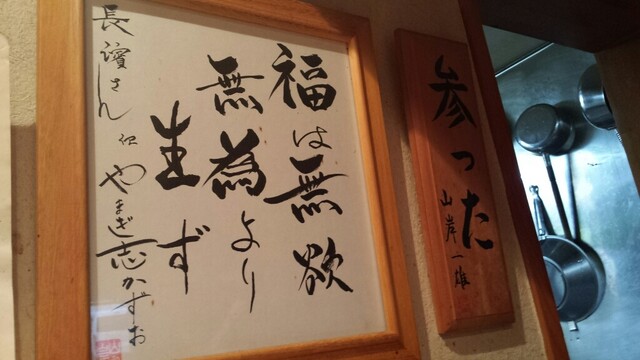 参った
山岸一雄
福は無欲
無為より
生ず
長濵さん 江
やまぎ志かずお